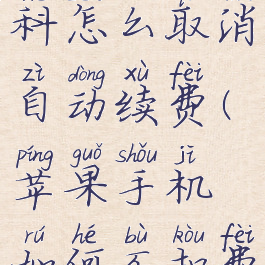 科怎么取消
zì dòng xù fèi
自动续费(
píng guǒ shǒu jī
苹果手机
rú hé bù kòu fèi
如何不扣费